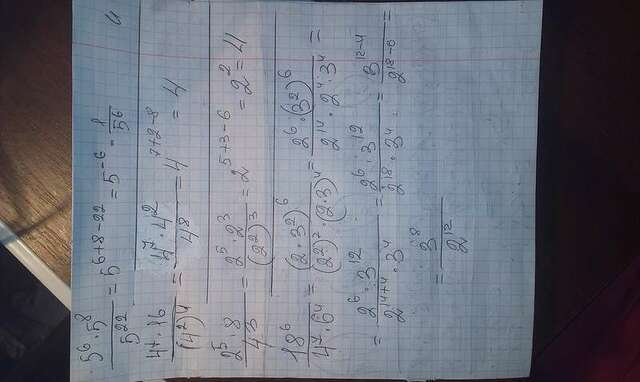 5⁶·5⁸/5²² = 5⁶⁺⁸⁻²² = 5⁻⁶ = 1/5⁶
4⁷·16/(4²)⁴ = 4⁷·4²/4⁸ = 4⁷⁺²⁻⁸ = 4
2⁵·8/4³ = 2⁵·2³/(2²)³ = 2⁵⁺³⁻⁶ = 2² = 4
18⁶/4⁷·6⁴ = (2·3²)⁶/(2²)⁷·(2·3)⁴ = 2⁶·(3²)⁶/2¹⁴·2⁴·3⁴ =
= 2⁶·3¹²/2¹⁴⁺⁴·3⁴ = 2⁶·3¹²/2¹⁸·3⁴ = 3¹²⁻⁴/2¹⁸⁻⁶ =
= 3⁸/2¹²